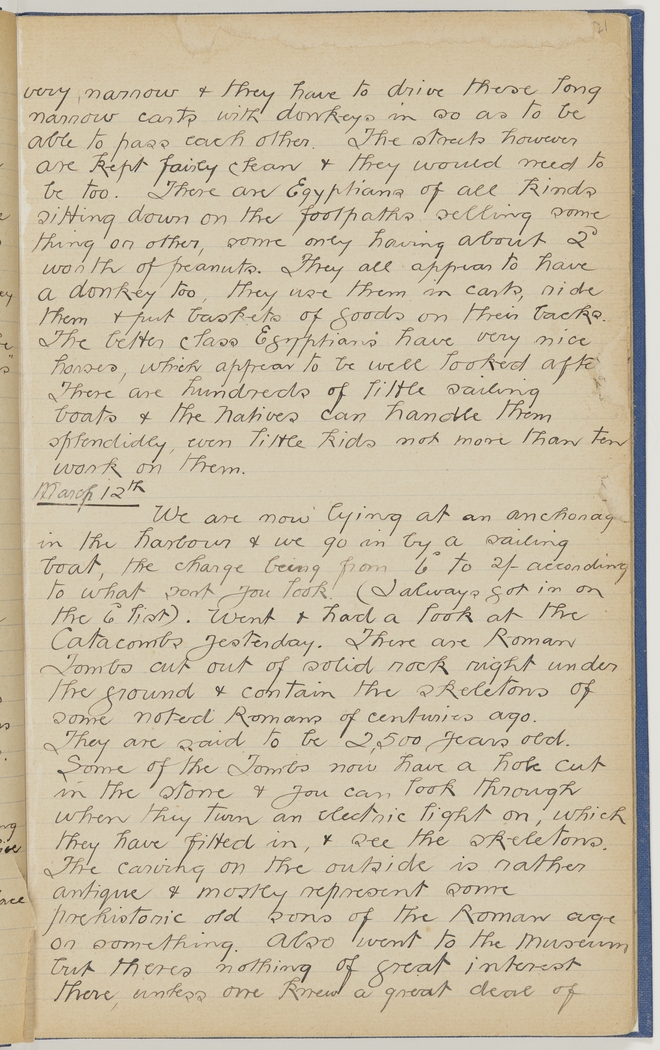 21
very narrow & they have to drive these long
narrow carts with donkeys in so as to be
able to pass each other. The streets however
are kept fairly clean & they would need to
be too. There are Egyptians of all kinds
sitting down on the footpaths selling some
thing or other, some only having about 2d
worth of peanuts. They all appear to have
a donkey too, they use them in carts, ride
them & put baskets of goods on their backs.
The better class Egyptians have very nice
horses, which appear to be well looked afte
There are hundreds of little sailing
boats & the Natives can handle them
splendidly, even little kids not more than ten
work on them.
March 12th
We are now lying at an anchorag
in the harbour & we go in by a sailing
boat, the charge being from 6d to 2/- according
to what sort you look. (I always got in on
the 6d list). Went & had a look at the
Catacombs yesterday. There are Roman
Tombs cut out of solid rock right under
the ground & contain the skeletons of
some noted Romans of centuries ago.
They are said to be 2,500 years old.
Some of the Tombs now have a hole cut
in the stone & you can look through
when they turn an electric light on, which
they have fitted in, & see the skeletons.
The carving on the outside is rather
antique & mostly represent some
prehistoric old sons of the Roman age
or something. Also went to the Museum
but theres nothing of great interest
there, unless one knew a great deal of